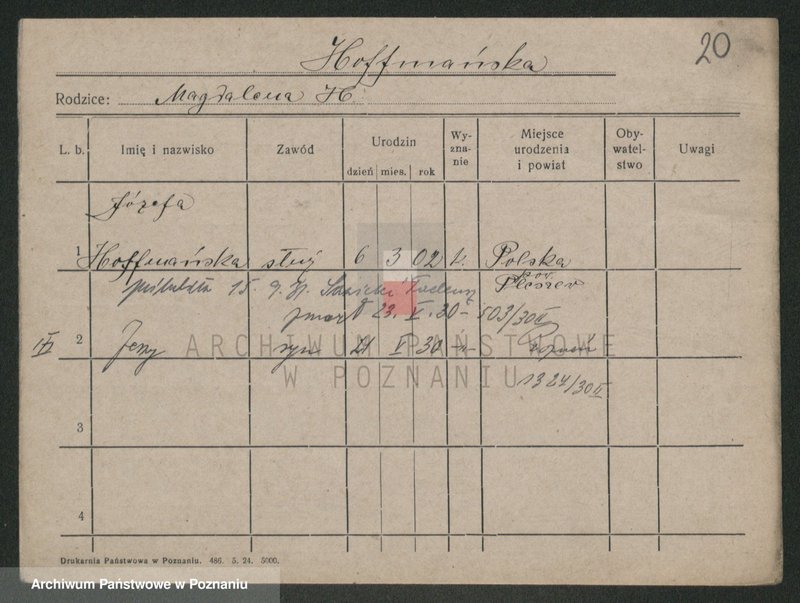 20
Hoffmańska
Rodzice: Magdalena H.
L. b. Imię i nazwisko Zawód Urodzin dzień mies. rok Wy-zna-nie Miejsce urodzenia i powiat Oby-watel-stwo Uwagi
Józefa
1 Hoffmańska służ 6 3 02 k. Polska
15. 9. pow. Pleszew
zmarł 23. V. 30 – 503/30 II
2 Jerzy syn 21 V 30
ARCHIWUM PAŃSTWOWE
W POZNANIU
1324/30 II
3
4
Drukarnia Państwowa w Poznaniu. 486. 5. 24. 5000.
Archiwum Państwowe w Poznaniu